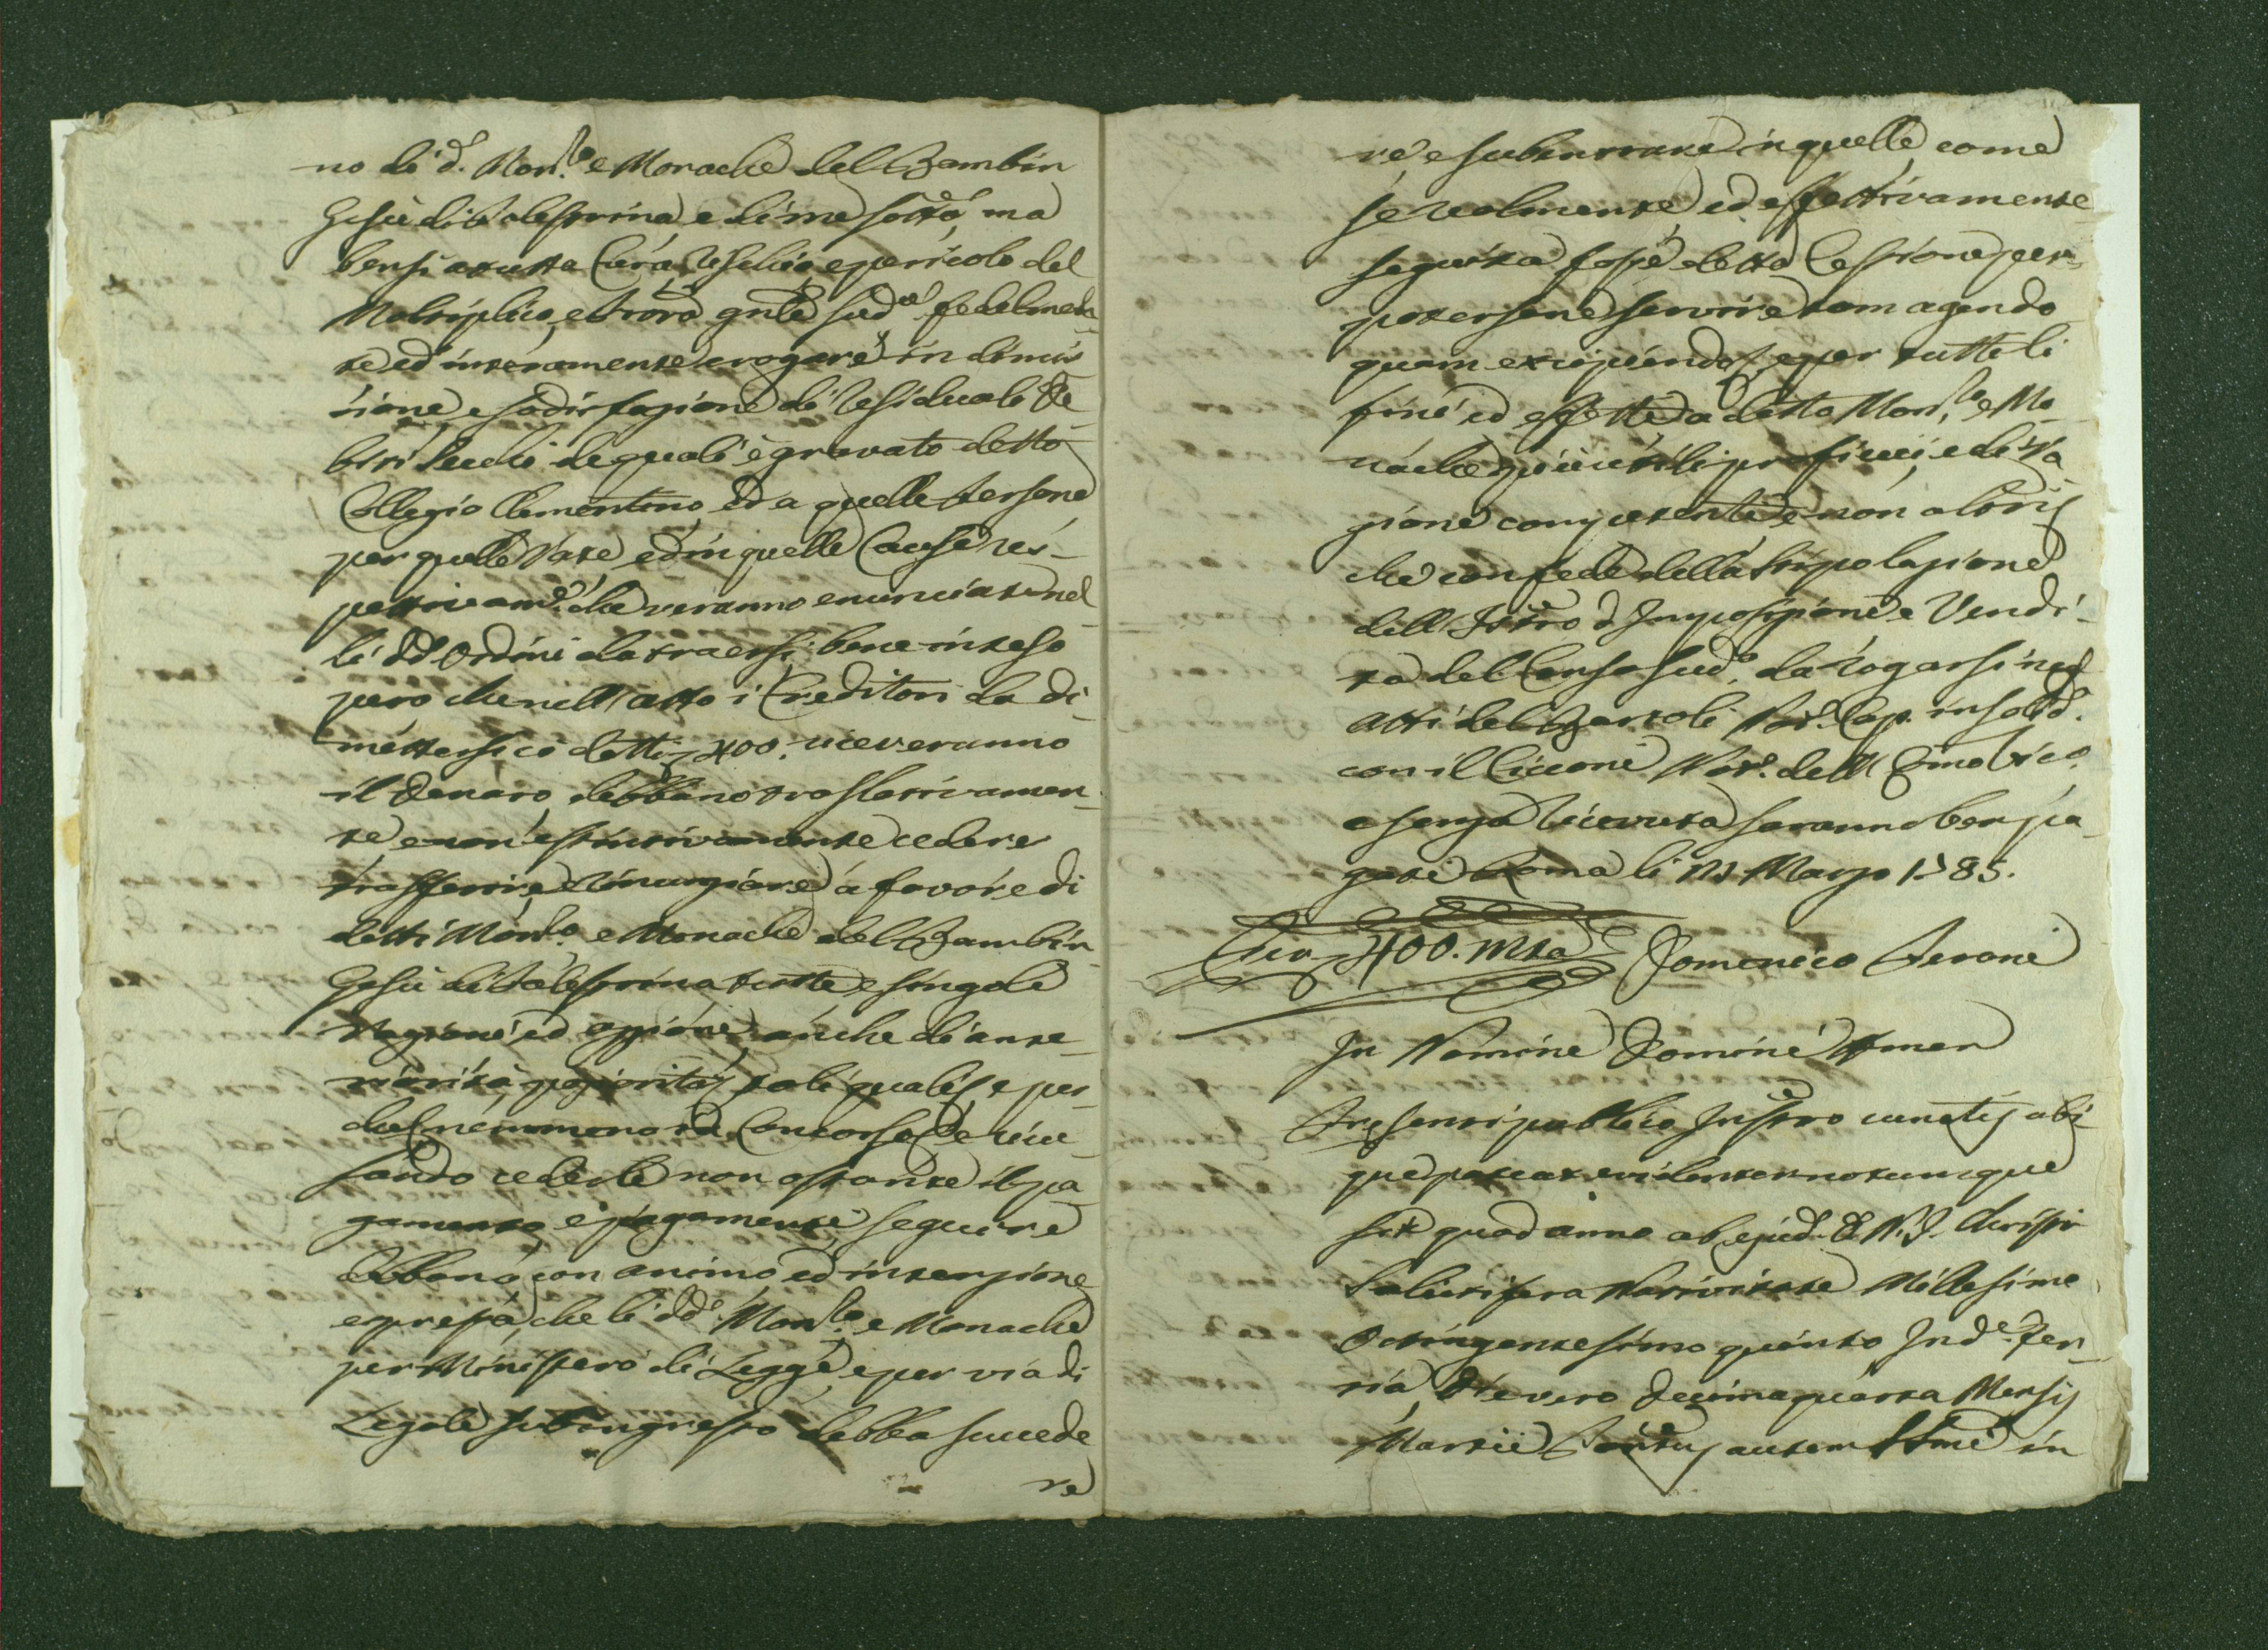 no di d.º Mon.ro e Monache del Bambin
Gesù di Palestrina e di me sottó, ma
bensi a tutta Cura, Rischio, e pericolo del
Moltiplico, e Prová gnle sudº fedelmen-
te ed interamente erogare in dimis-
sione, e sodisfazione di residuali De-
biti Vecchi de quali è gravato detto
Collegio Clementino, ed a quelle Persone
per quelle Rate ed in quelle Cause res-
pettivamẽ. che veranno enunciate nel-
li dd. Ordini da trarsi; bene inteso
pero che nell'atto i Creditori da di-
mettersi cõ detti 400. riceveranno
il Denaro, debbano traslativamen-
te e non estintivamente cedere
trasferire, e rinunziare a favore di
detti Mon.ro e Monache del Bambin
Gesù di Palestrina tutte e singole
Ragioni ed azzioni, anche di ante-
riorità, poziorità, tali quali, e per-
che nemmeno in Concorso, e ricu-
sando cederle non ostante il pa-
gamento, e pagamenti seguire
debbano con animo ed intenzione
espressa, che li dd. Mon.ro e Monache
per Ministero di Legge, e per via di
Legale subingresso debba succede
re
re e subentrare in quelle come
se realmente, ed effettivamente
seguita fosse detta Cessione per
potersene servire tam agendo
quam excipiendo, e per tutti li
fini ed effetti a detto Mon.ro e Mo-
nache più utili, proficui, e di ra-
gione competenti, e non altris
che con fede della stipolazione
dell'Istro d'Imposizione e Vendi-
ta del Censo sudº. da rogarsi negl'
atti del Bartoli Not. Cap. in solid.
con il Cicconi Not. dell'Emo Vicº.
e senza ricevuta saranno ben pa-
gati Roma li 14 Marzo 1785.
Scu 400. mta Domenico Peroni
In Nomine Domini Amen
Presenti publico Instro cunctis ubi-
que pateat evidenter notumque
sit quod anno ab ejusd. D. N. J. Christi
Salutifera Nativitate Millesimo
Octingentesimo quinto Ind.e Ter-
tia, Die vero Decimaquarta Mensis
Martii Pontus autem SSmi in